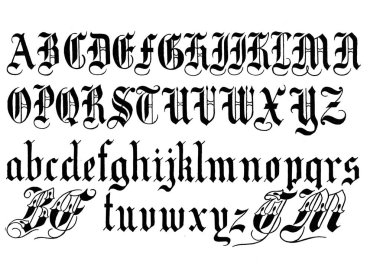 ABCDEFGHIJKLMN
OPQRSTUVWXYZ
abcdefghijklmnopqrs
tuvwxyz